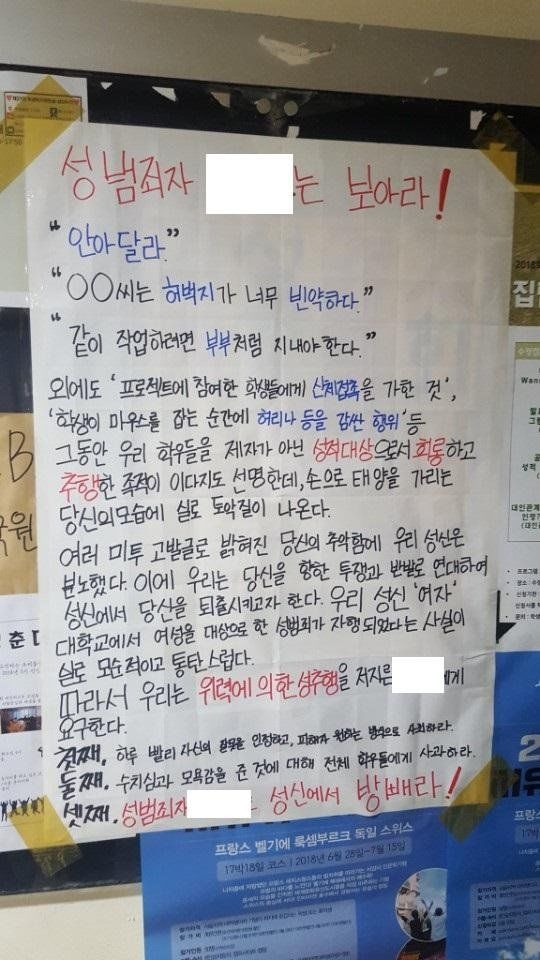 성범죄자 는 보아라!
"안아달라."
"○○씨는 허벅지가 너무 빈약하다."
"같이 작업하려면 부부처럼 지내야한다."
외에도 '프로젝트에 참여한 학생들에게 신체접촉을 가한 것',
'학생이 마우스를 잡는 순간에 허리나 등을 감싼 행위' 등
그동안 우리 학우들을 제자가 아닌 성적대상으로서 희롱하고
추행한 족적이 이다지도 선명한데, 손으로 태양을 가리는
당신의 모습에 실로 토악질이 나온다.
여러 미투 고발글로 밝혀진 당신의 추악함에 우리 성신은
분노했다. 이에 우리는 당신을 향한 투쟁과 반발로 연대하여
성신에서 당신을 퇴출시키고자 한다. 우리 성신 '여자'
대학교에서 여성을 대상으로 한 성범죄가 자행되었다는 사실이
실로 모순적이고 통탄스럽다.
따라서 우리는 위력에 의한 성추행을 저지른 에게
요구한다.
첫째. 하루 빨리 자신의 잘못을 인정하고, 피해자가 원하는 방식으로 사죄하라.
둘째. 수치심과 모욕감을 준 것에 대해 전체 학우들에게 사과하라.
셋째. 성범죄자 는 성신에서 방빼라!
프랑스 벨기에 룩셈부르크 독일 스위스
17박18일 코스 | 2018년 6월 28일~7월 15일
17박
2018
집단
대인관계
B
국원
춘 대